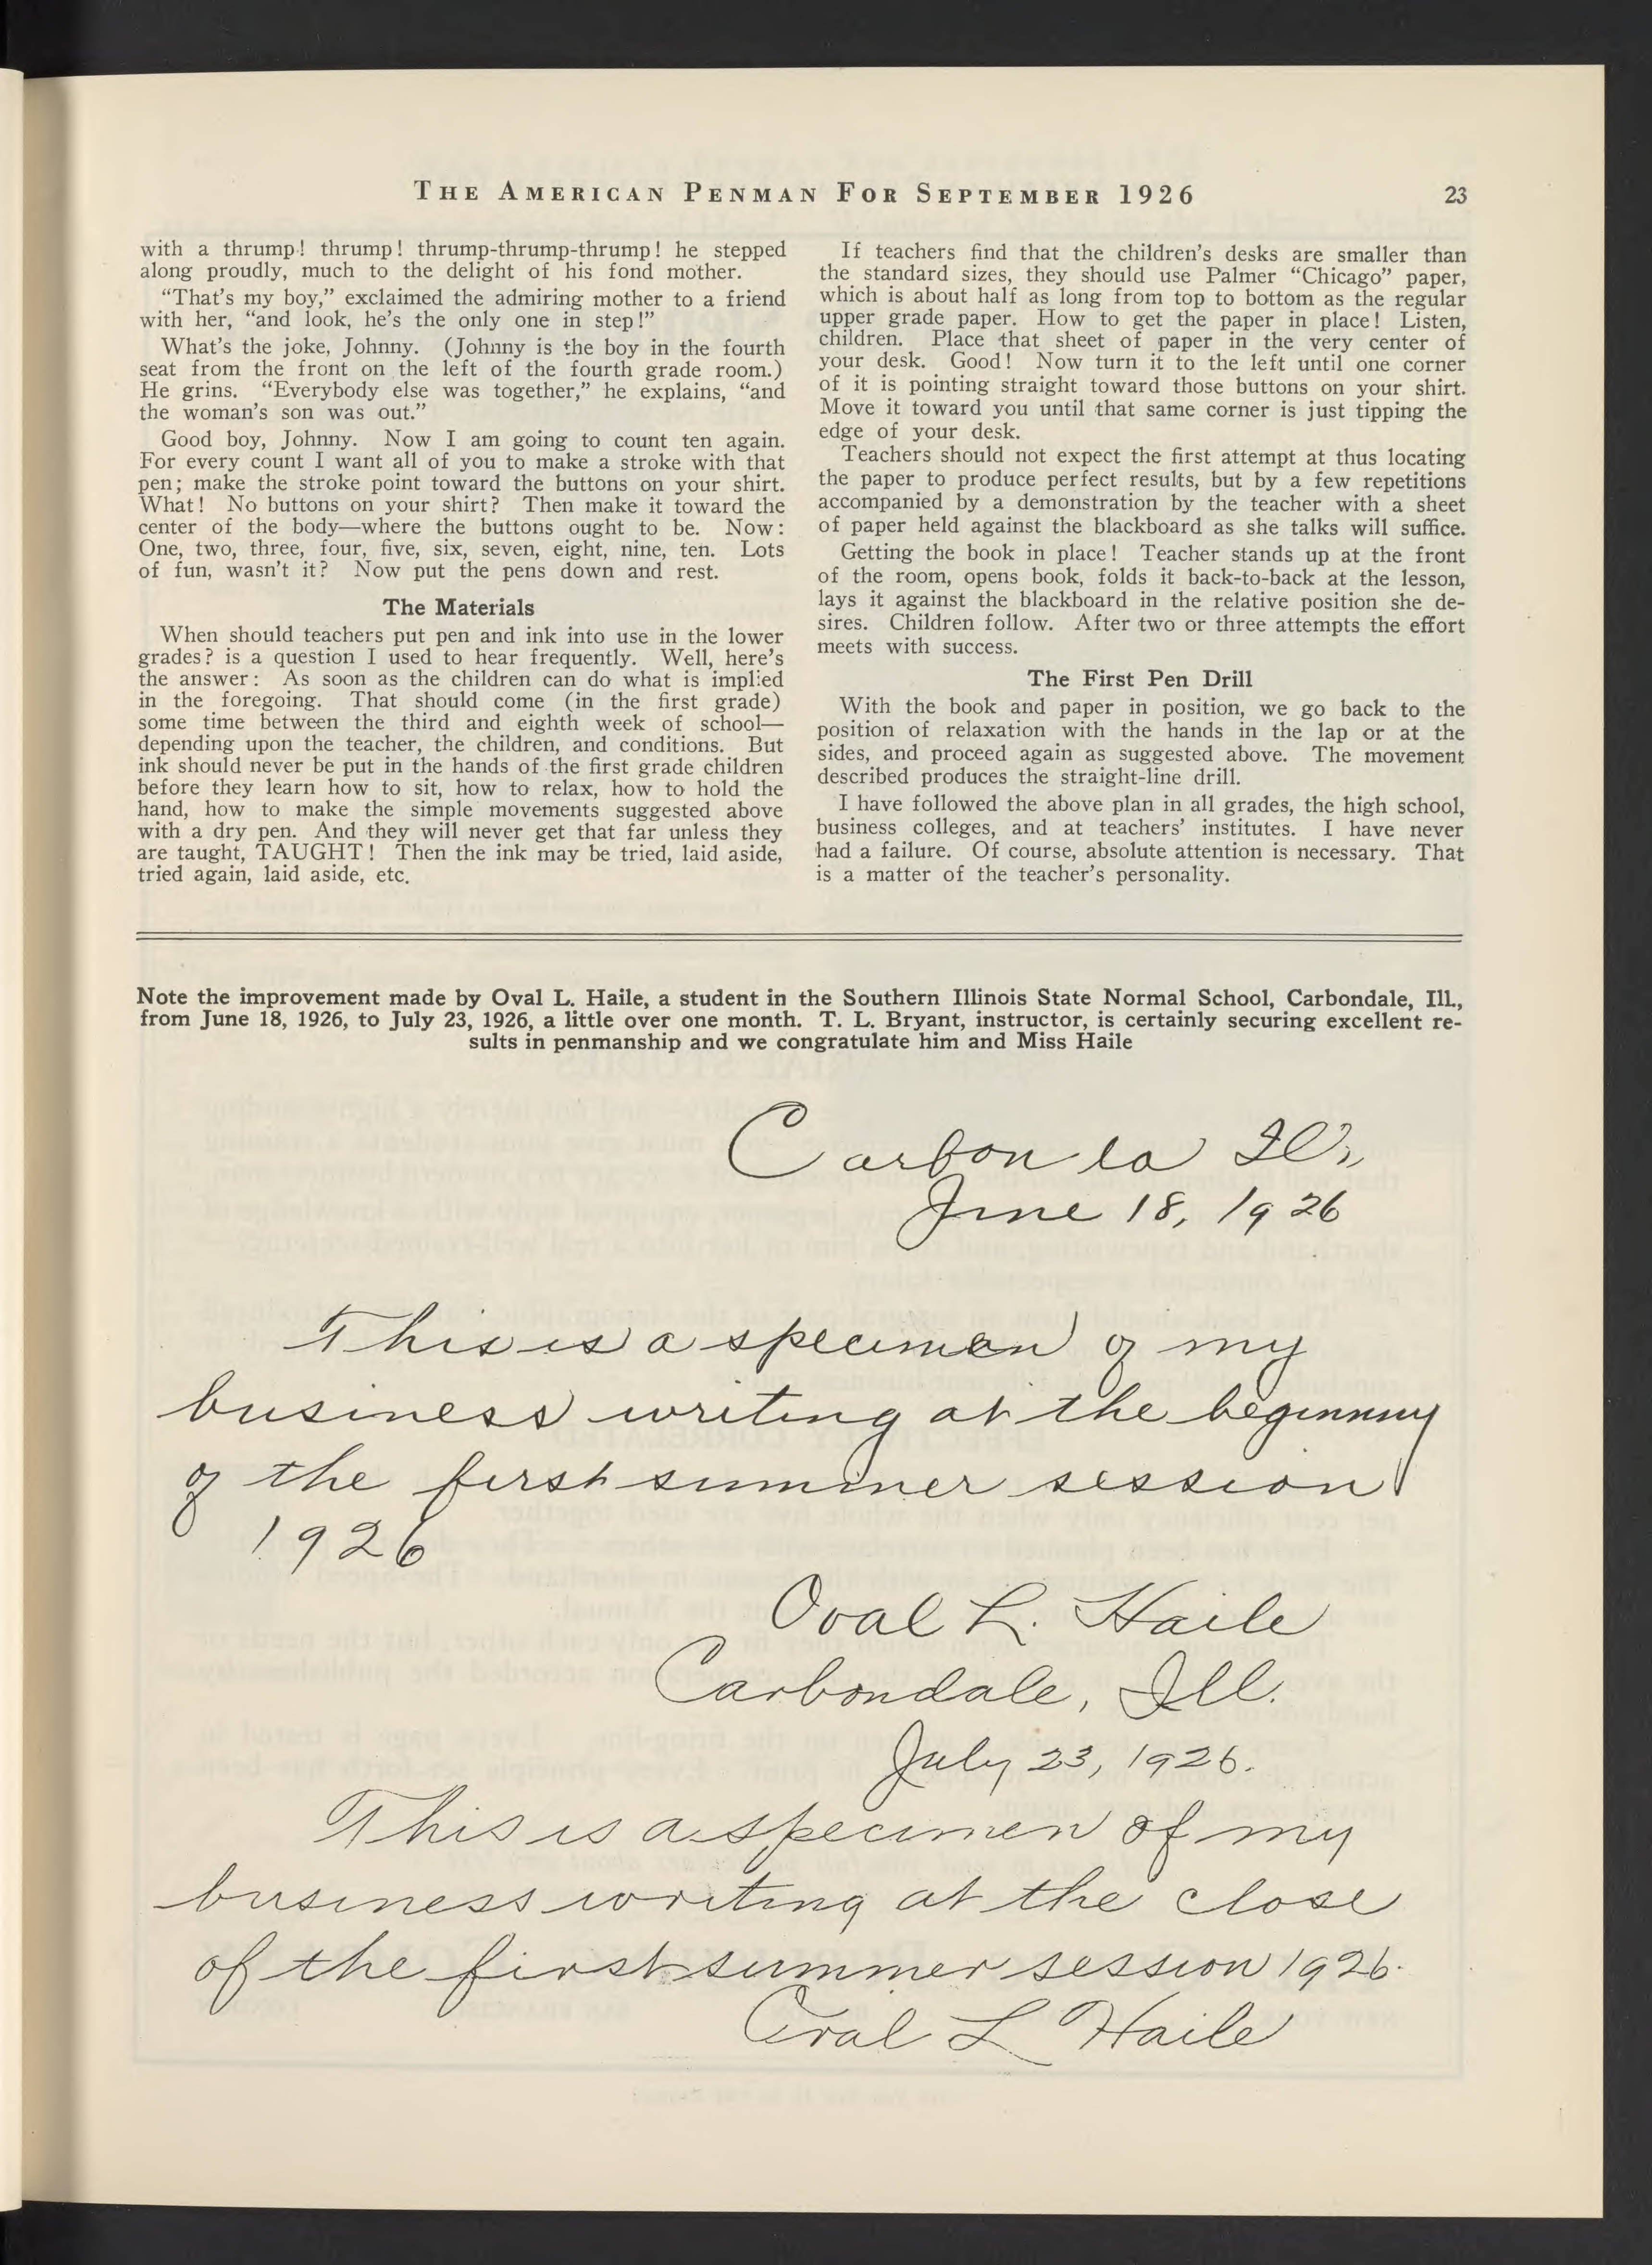 THE AMERICAN PENMAN FOR SEPTEMBER 1926 23
with a thrump! thrump! thrump-thrump-thrump! he stepped
along proudly, much to the delight of his fond mother.
“That's my boy,” exclaimed the admiring mother to a friend
with her, “and look, he's the only one in step!”
What's the joke, Johnny. (Johnny is the boy in the fourth
seat from the front on the left of the fourth grade room.)
He grins. “Everybody else was together,” he explains, “and
the woman's son was out.”
Good boy, Johnny. Now I am going to count ten again.
For every count I want all of you to make a stroke with that
pen; make the stroke point toward the buttons on your shirt.
What! No buttons on your shirt? Then make it toward the
center of the body—where the buttons ought to be. Now:
One, two, three, four, five, six, seven, eight, nine, ten. Lots
of fun, wasn't it? Now put the pens down and rest.
The Materials
When should teachers put pen and ink into use in the lower
grades? is a question I used to hear frequently. Well, here's
the answer: As soon as the children can do what is implied
in the foregoing. That should come (in the first grade)
some time between the third and eighth week of school—
depending upon the teacher, the children, and conditions. But
ink should never be put in the hands of the first grade children
before they learn how to sit, how to relax, how to hold the
hand, how to make the simple movements suggested above
with a dry pen. And they will never get that far unless they
are taught, TAUGHT! Then the ink may be tried, laid aside,
tried again, laid aside, etc.
If teachers find that the children's desks are smaller than
the standard sizes, they should use Palmer “Chicago” paper,
which is about half as long from top to bottom as the regular
upper grade paper. How to get the paper in place! Listen,
children. Place that sheet of paper in the very center of
your desk. Good! Now turn it to the left until one corner
of it is pointing straight toward those buttons on your shirt.
Move it toward you until that same corner is just tipping the
edge of your desk.
Teachers should not expect the first attempt at thus locating
the paper to produce perfect results, but by a few repetitions
accompanied by a demonstration by the teacher with a sheet
of paper held against the blackboard as she talks will suffice.
Getting the book in place! Teacher stands up at the front
of the room, opens book, folds it back-to-back at the lesson,
lays it against the blackboard in the relative position she de-
sires. Children follow. After two or three attempts the effort
meets with success.
The First Pen Drill
With the book and paper in position, we go back to the
position of relaxation with the hands in the lap or at the
sides, and proceed again as suggested above. The movement
described produces the straight-line drill.
I have followed the above plan in all grades, the high school,
business colleges, and at teachers' institutes. I have never
had a failure. Of course, absolute attention is necessary. That
is a matter of the teacher's personality.
Note the improvement made by Oval L. Haile, a student in the Southern Illinois State Normal School, Carbondale, Ill.,
from June 18, 1926, to July 23, 1926, a little over one month. T. L. Bryant, instructor, is certainly securing excellent re-
sults in penmanship and we congratulate him and Miss Haile
Carbon la Ill,
June 18, 1926
This is a specimen of my
business writing at the beginning
of the first summer session
1926
Oval L. Haile
Carbondale, Ill.
July 23, 1926.
This is a specimen of my
business writing at the close
of the first summer session 1926.
Oval L Haile